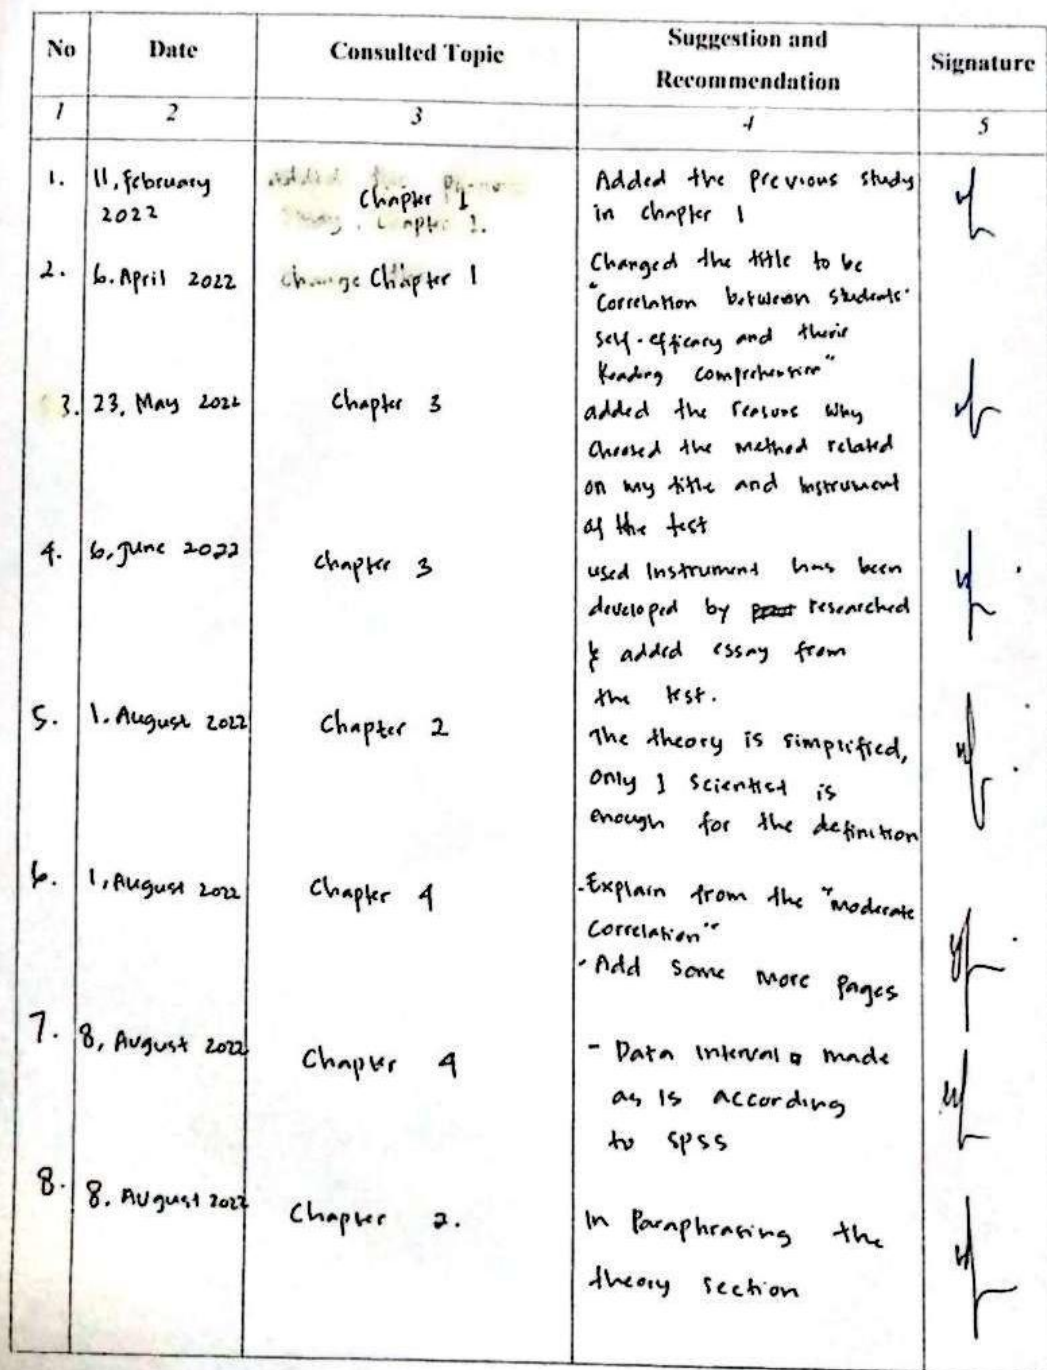 No Date Consulted Topic Suggestion and Recommendation Signature
1 2 3 4 5
1. 11, February 2022 Chapter 1 Added the previous study
in chapter 1
2. 6. April 2022 change Chapter 1 Changed the title to be
"Correlation between students'
self-efficacy and their
Reading comprehension"
3. 23, May 2022 Chapter 3 added the reasons why
choosed the method related
on my title and instrument
of the test
4. 6, June 2022 Chapter 3 used instrument has been
developed by researched
& added essay from
the test.
5. 1. August 2022 Chapter 2 The theory is simplified,
only 1 scientist is
enough for the definition
6. 1, August 2022 Chapter 4 -Explain from the "Moderate
Correlation"
- Add some more pages
7. 8, August 2022 Chapter 4 - Data interval made
as is according
to SPSS
8. 8. August 2022 Chapter 2. In Paraphrasing the
theory section